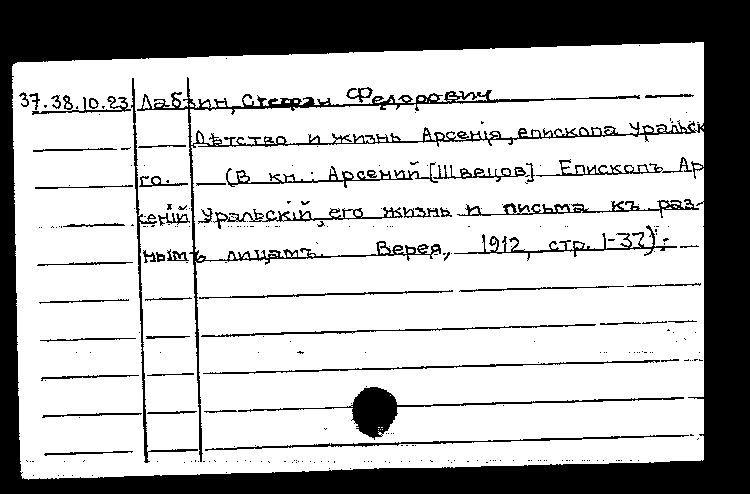 37.38.10.23 Лабзин, Стефан Федорович
Дѣтство и жизнь Арсенія, епископа Уральск
го. (В кн.: Арсений [Швецов] Епископъ Ар
сеній Уральскій, его жизнь и письма къ раз-
нымъ лицамъ. Верея, 1912, стр. 1-32);